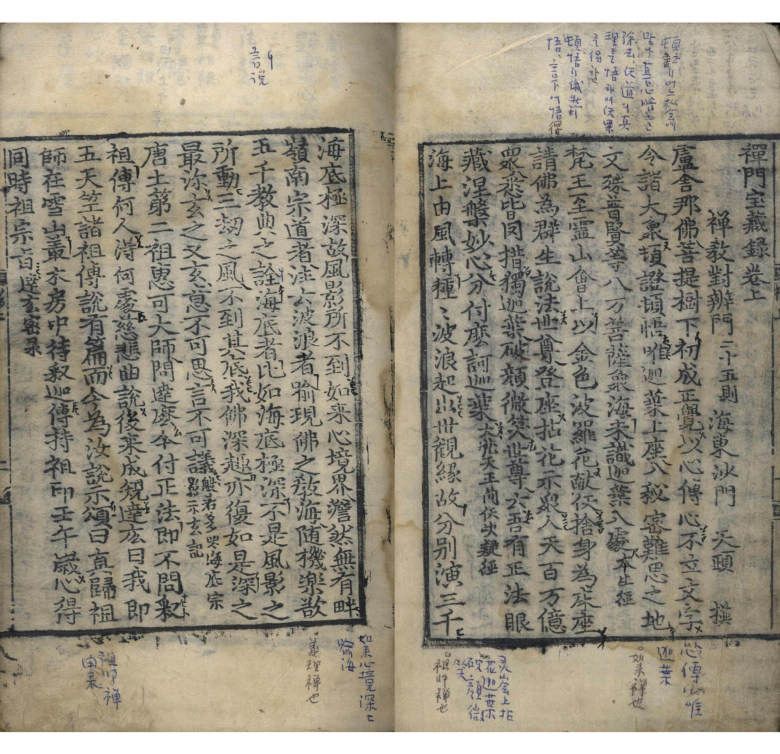 禪門宝藏録卷上
禪教對辨門 二十五則 海東沙門 天頭 撰
盧舍那佛菩提樹下初成正覺以心傳心不立文字
令諸大衆頓證頓悟唯迦葉上座入秘密難思之地
文殊普賢等八万菩薩衆海未識迦葉入處 本生經
梵王至靈山會上以金色波羅花献佛捨身為床座
請佛為群生說法世尊登座拈花示衆人天百万億
衆悉皆罔措獨迦葉破顔微笑世尊云吾有正法眼
藏涅槃妙心分付麽訶迦葉 大梵天王問佛决疑經
海上由風轉種〻波浪起出世觀縁故分別演三千
迦葉
如来禅也
祖师禅也
言說
海底極深故風影所不到如来心境界澹然無有畔
嶺南宗道者注云波浪者喻現佛之教海随機樂欲
五千教典之詮海底者比如海底極深不是風影之
所動三劫之風不到其底我佛深趣亦復如是深之
最深玄之又玄意不可思言不可議 般若多羅海底宗影示玄記
唐土第二祖惠可大師問達麽今付正法即不問釈
祖傳何人得何處慈悲曲說後来成規達麽曰我即
五天竺諸祖傳說有篇而今為汝說示頌曰真歸祖
師在雪山叢木房中待釈迦傳持祖印壬午歲心得
同時祖宗旨 達玄密录
義理禅也
祖师禅
由来